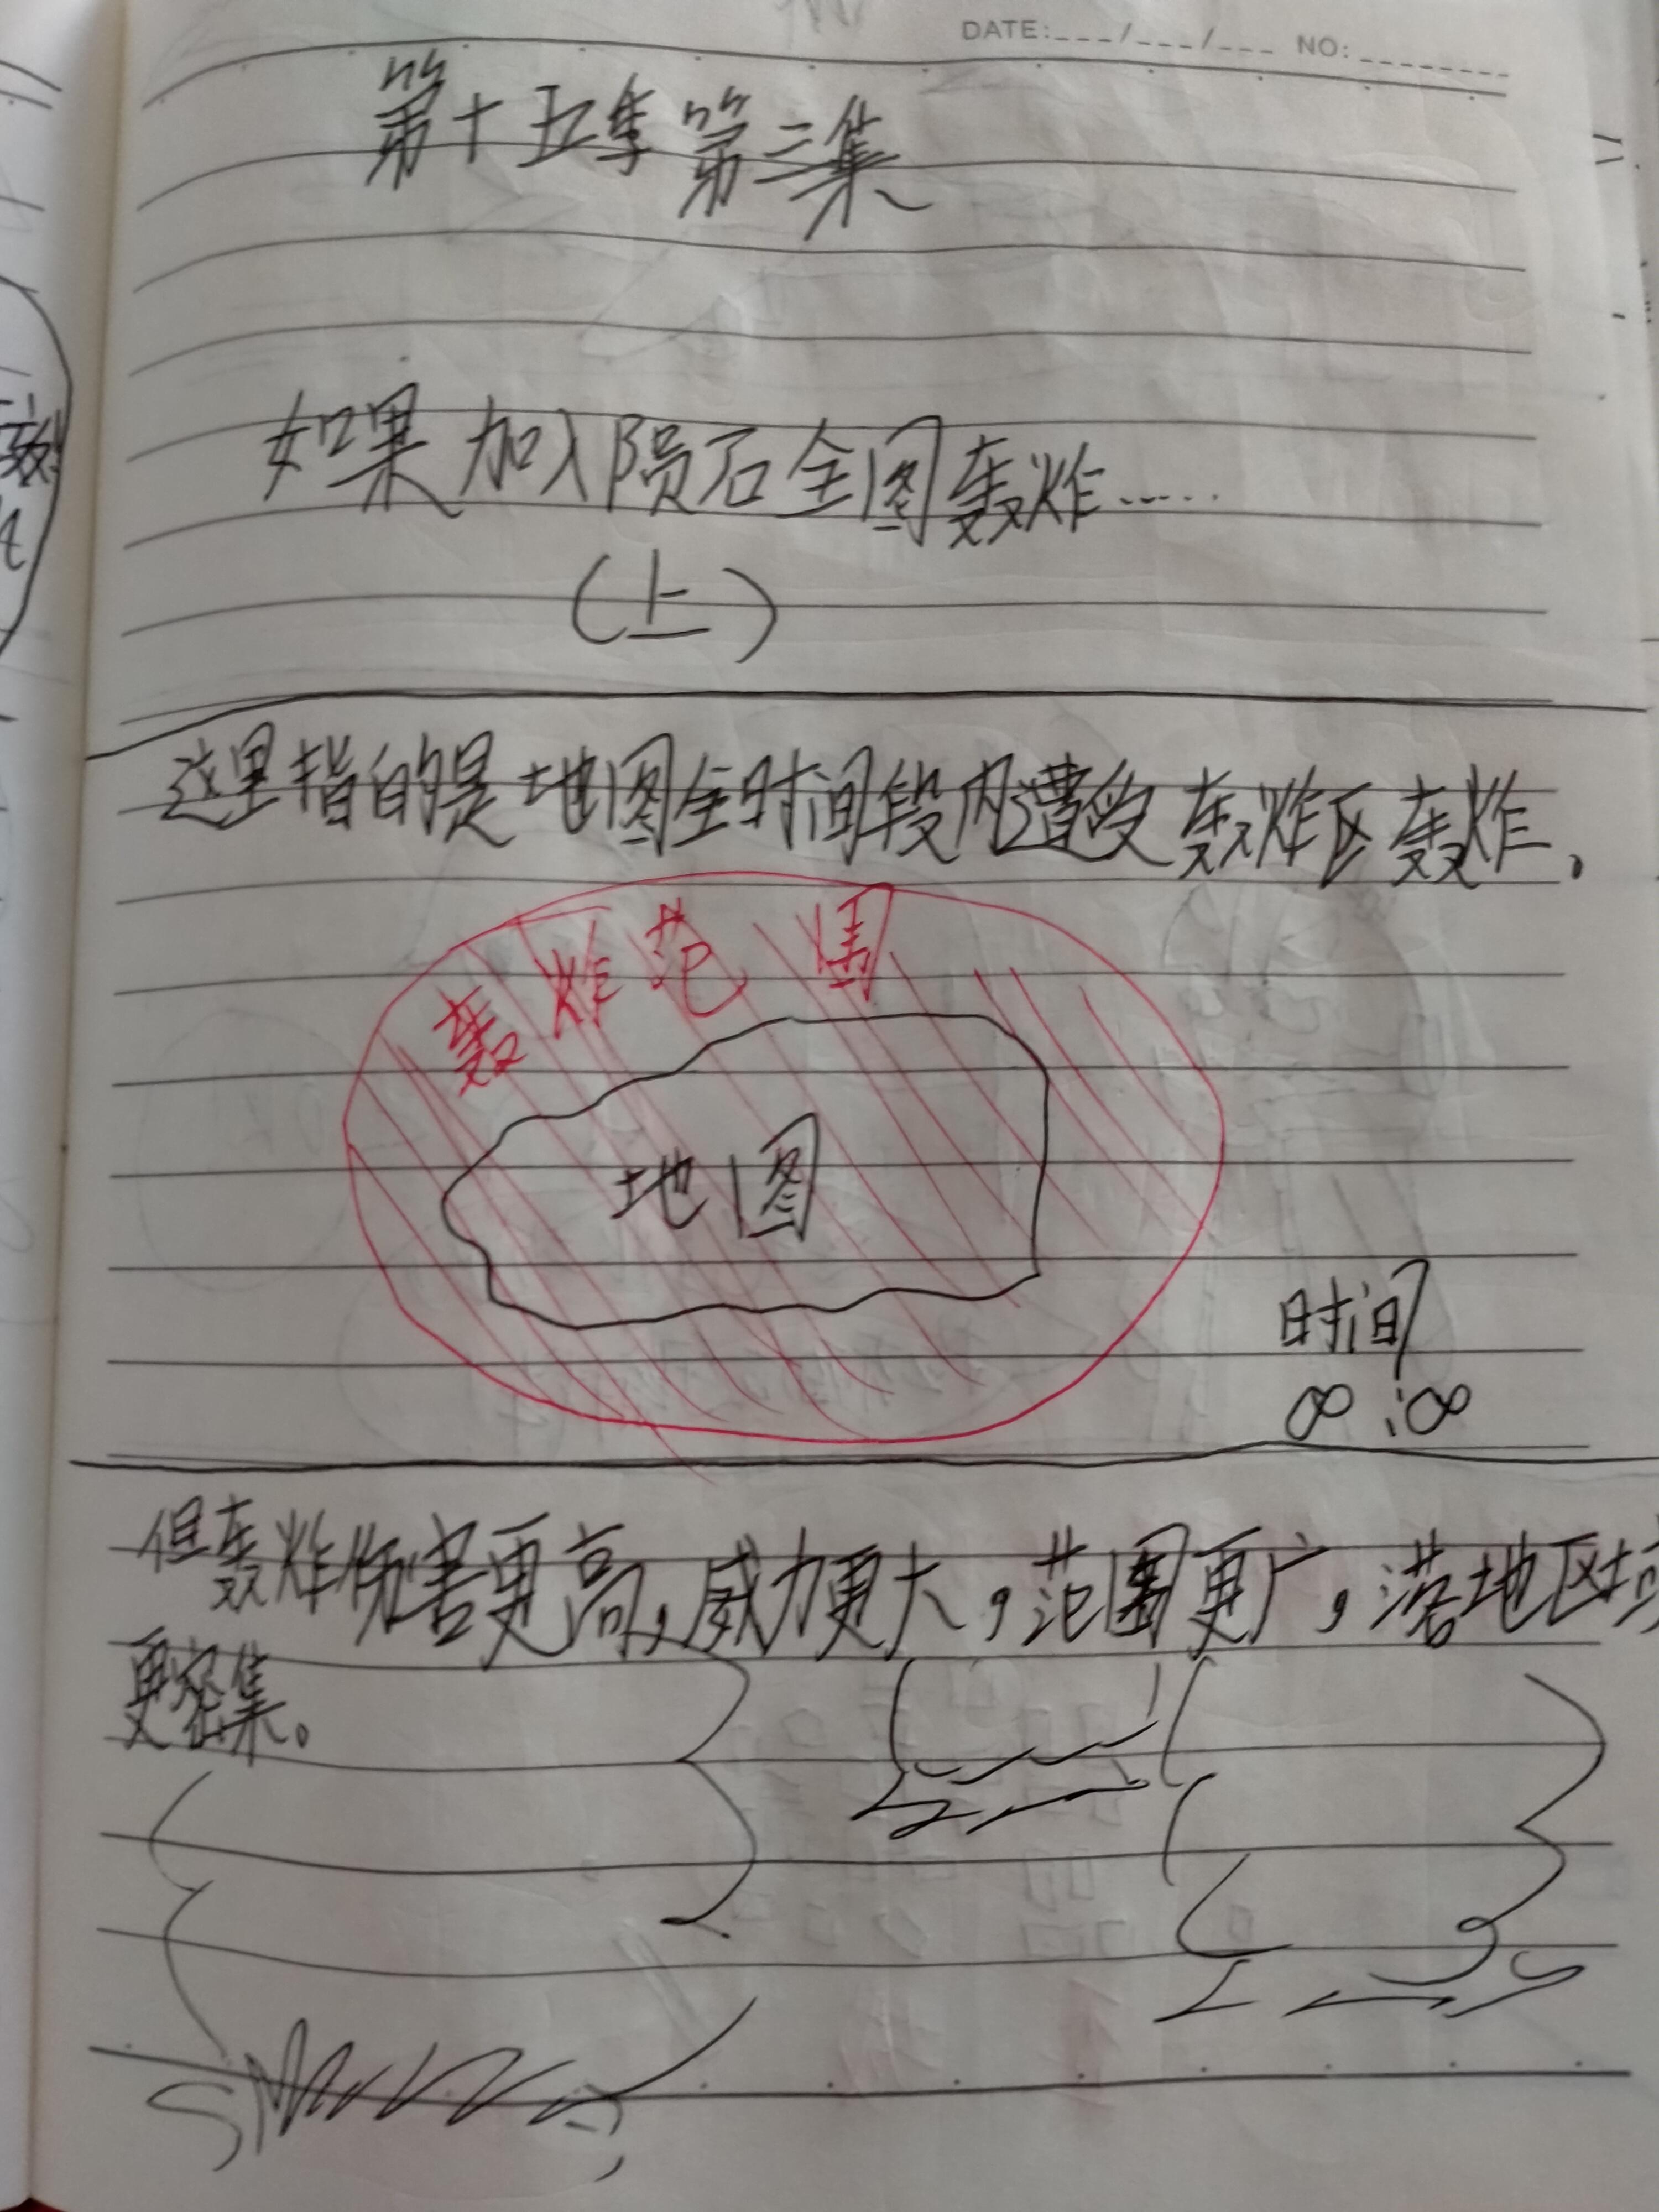 DATE:___/___/___ NO:________
第十五季第三集
如果加入陨石全图轰炸……
(上)
这里指的是地图全时间段内遭受轰炸区轰炸,
轰炸范围
地图
时间
∞:∞
但轰炸伤害更高,威力更大,范围更广,落地区域
更密集。